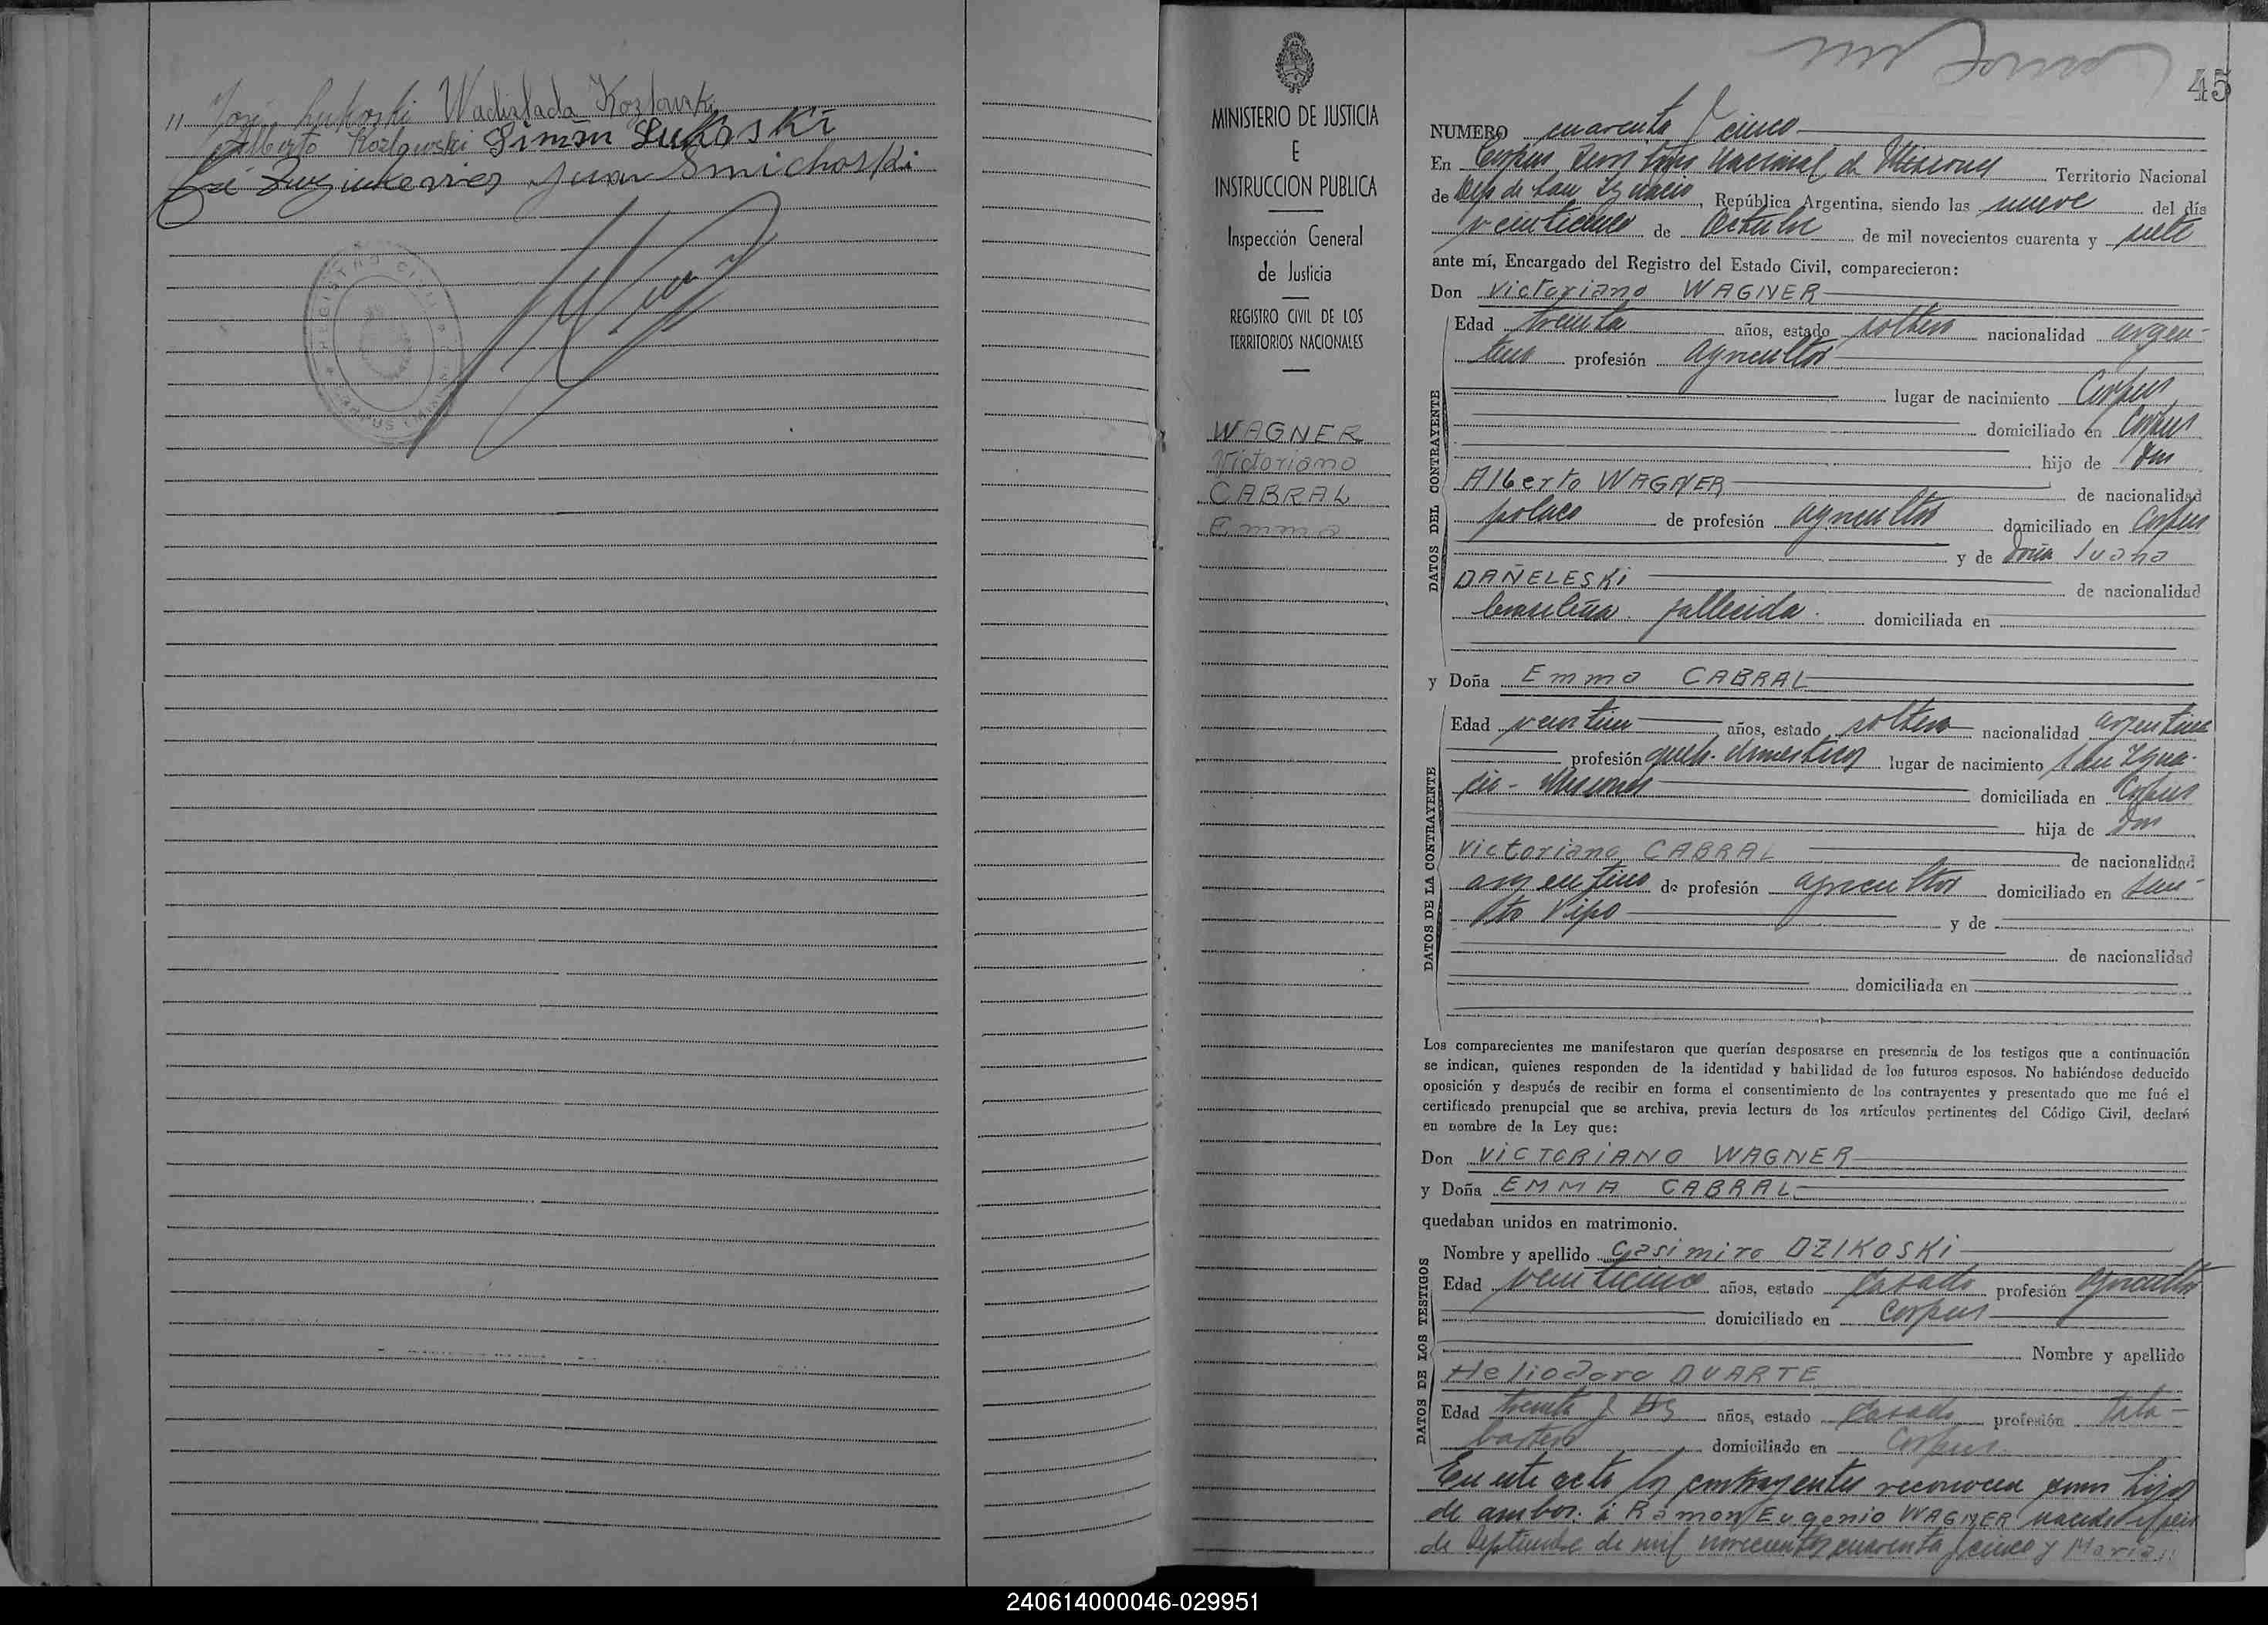 " José Lukoski Wadislada Kozlowski
Alberto Kozlowski Simón Lukoski
José Juan Smichoski
REGISTRO CIVIL
CORPUS
MINISTERIO DE JUSTICIA
E
INSTRUCCION PUBLICA
Inspección General
de Justicia
REGISTRO CIVIL DE LOS
TERRITORIOS NACIONALES
WAGNER
Victoriano
CABRAL
Emma
45
NUMERO cuarenta y cinco
En Corpus Territorio Nacional de Misiones Territorio Nacional
de Dep de San Ignacio, República Argentina, siendo las nueve del día
veinticinco de Octubre de mil novecientos cuarenta y siete
ante mí, Encargado del Registro del Estado Civil, comparecieron:
Don Victoriano WAGNER
DATOS DEL CONTRAYENTE
Edad treinta años, estado soltero nacionalidad argen-
tino profesión agricultor
lugar de nacimiento Corpus
domiciliado en Corpus
hijo de Don
Alberto WAGNER de nacionalidad
polaco de profesión agricultor domiciliado en Corpus
y de Doña Juana
DAÑELESKI de nacionalidad
brasileña. fallecida. domiciliada en
y Doña Emma CABRAL
DATOS DE LA CONTRAYENTE
Edad años, estado soltera nacionalidad argentina
profesión queh. domesticos lugar de nacimiento San Igna-
cio - Misiones domiciliada en Corpus
hija de Don
Victoriano CABRAL de nacionalidad
argentino de profesión agricultor domiciliado en
y de
de nacionalidad
domiciliada en
Los comparecientes me manifestaron que querían desposarse en presencia de los testigos que a continuación
se indican, quienes responden de la identidad y habilidad de los futuros esposos. No habiéndose deducido
oposición y después de recibir en forma el consentimiento de los contrayentes y presentado que me fué el
certificado prenupcial que se archiva, previa lectura de los artículos pertinentes del Código Civil, declaré
en nombre de la Ley que:
Don VICTORIANO WAGNER
y Doña EMMA CABRAL
quedaban unidos en matrimonio.
DATOS DE LOS TESTIGOS
Nombre y apellido Casimiro DZIKOSKI
Edad veinticinco años, estado casado profesión agricultor
domiciliado en Corpus
Nombre y apellido
Heliodoro DUARTE
Edad treinta y años, estado casado profesión
domiciliado en Corpus
En este acto los contrayentes reconocen como hijos
de ambos: á Ramon Eugenio WAGNER nacido el seis
de Septiembre de mil novecientos cuarenta y cinco y María "
240614000046-029951